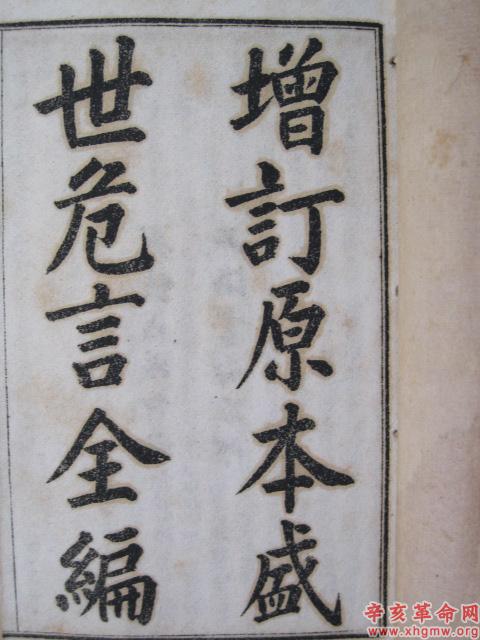 增訂原本盛
世危言全編
辛亥革命网
www.xhgmw.org